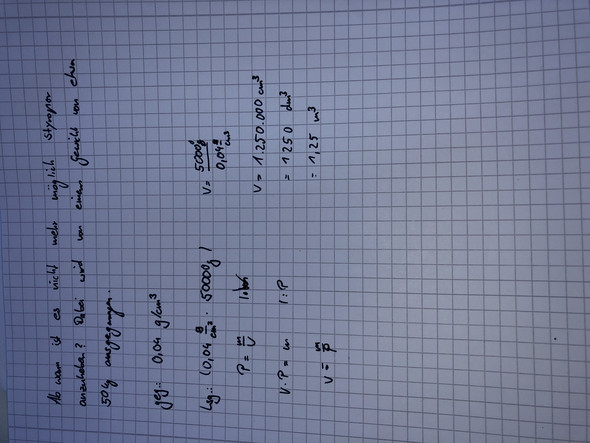 Ab wann ist es nicht mehr möglich Styropor
anzuheben? Dabei wird von einem Gewicht von etwa
50kg ausgegangen.
geg.: 0,04 g/cm³
Lsg.: (0,04 g/cm³ · 50000g)
ρ = m/V
V·ρ = m |:ρ
V = m/ρ
V = 5000g / 0,04 g/cm³
V = 1.250.000 cm³
= 1250 dm³
= 1,25 m³